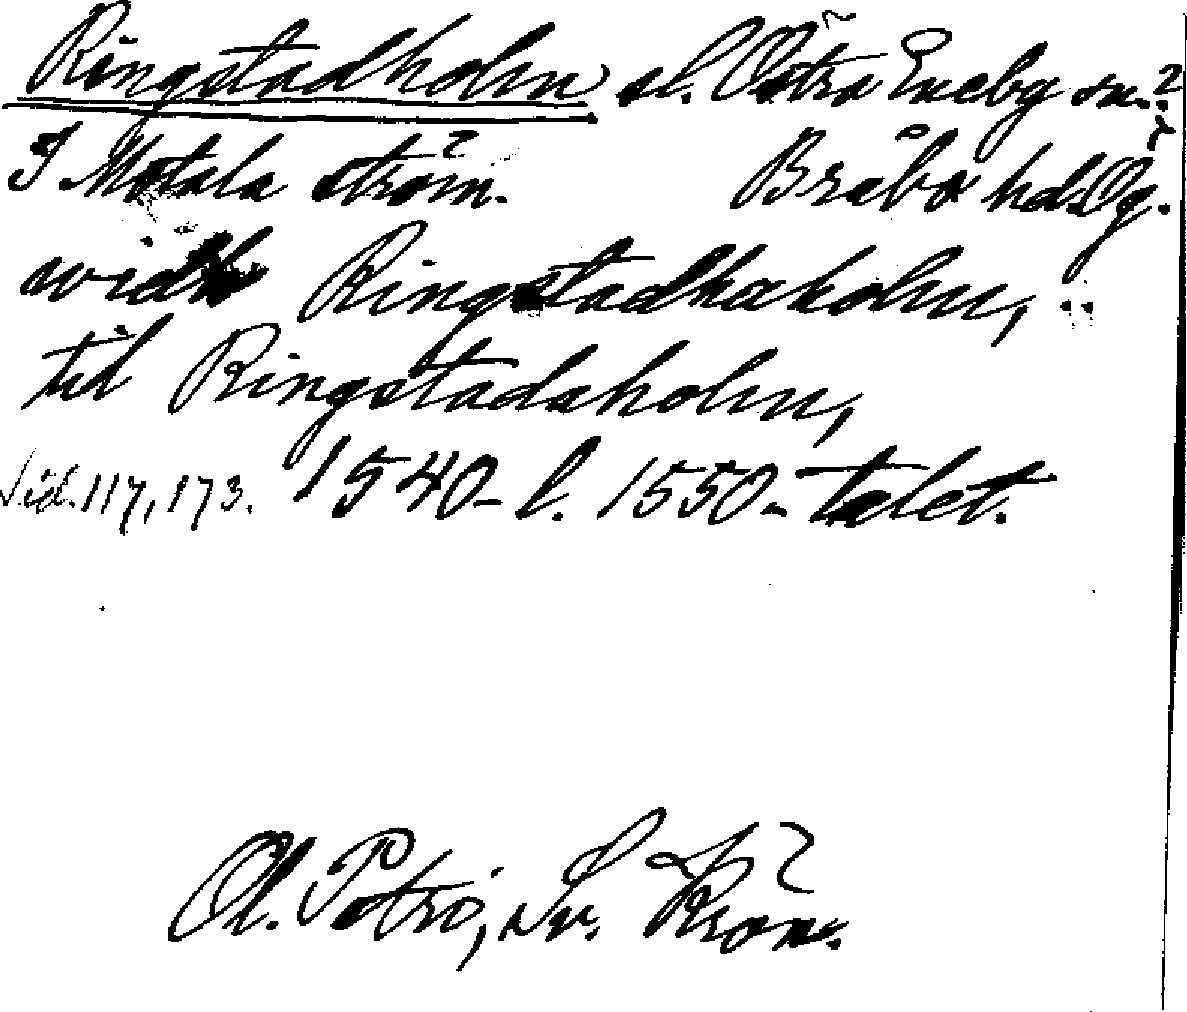 Ringstadholm sl. Östra Eneby sn.?
I Motala ström. Bråbo hd. Ög.
widh Ringstadhaholm,
til Ringstadaholm,
sid. 117, 173. 1540- l. 1550-talet.
Ol. Petri, Sv. Krön.